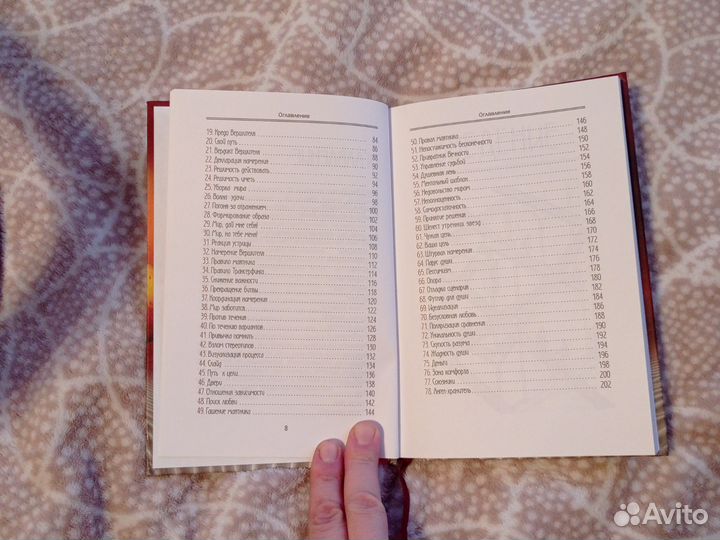 Оглавление
19. Кредо Вершителя 84
20. Свой путь 86
21. Вердикт Вершителя 88
22. Декларация намерения 90
23. Решимость действовать 92
24. Решимость иметь 94
25. Уборка мира 96
26. Волна удачи 98
27. Погоня за отражением 100
28. Формирование образа 102
29. Мир, дай мне себя! 104
30. Мир, на тебе меня! 106
31. Реакция устрицы 108
32. Намерение Вершителя 110
33. Правило маятника 112
34. Правило Трансерфинга 114
35. Снижение важности 116
36. Прекращение битвы 118
37. Координация намерения 120
38. Мир заботится 122
39. Против течения 124
40. По течению вариантов 126
41. Привычка помнить 128
42. Взлом стереотипов 130
43. Визуализация процесса 132
44. Слайд 134
45. Путь к цели 136
46. Двери 138
47. Отношения зависимости 140
48. Поиск любви 142
49. Гашение маятника 144
8
Оглавление
50. Провал маятника 146
51. Непостижимость бесконечности 148
52. Привратник Вечности 150
53. Управление судьбой 152
54. Душевная лень 154
55. Ментальный шаблон 156
56. Недовольство миром 158
57. Неполноценность 160
58. Самодостаточность 162
59. Принятие решения 164
60. Шелест утренних звезд 166
61. Чужая цель 168
62. Ваша цель 170
63. Штурвал намерения 172
64. Парус души 174
65. Пессимизм 176
66. Опора 178
67. Отладка сценария 180
68. Футляр для души 182
69. Идеализация 184
70. Безусловная любовь 186
71. Поляризация сравнения 188
72. Уникальность души 190
73. Скупость разума 192
74. Жадность души 194
75. Деньги 196
76. Зона комфорта 198
77. Союзники 200
78. Ангел-хранитель 202
Avito